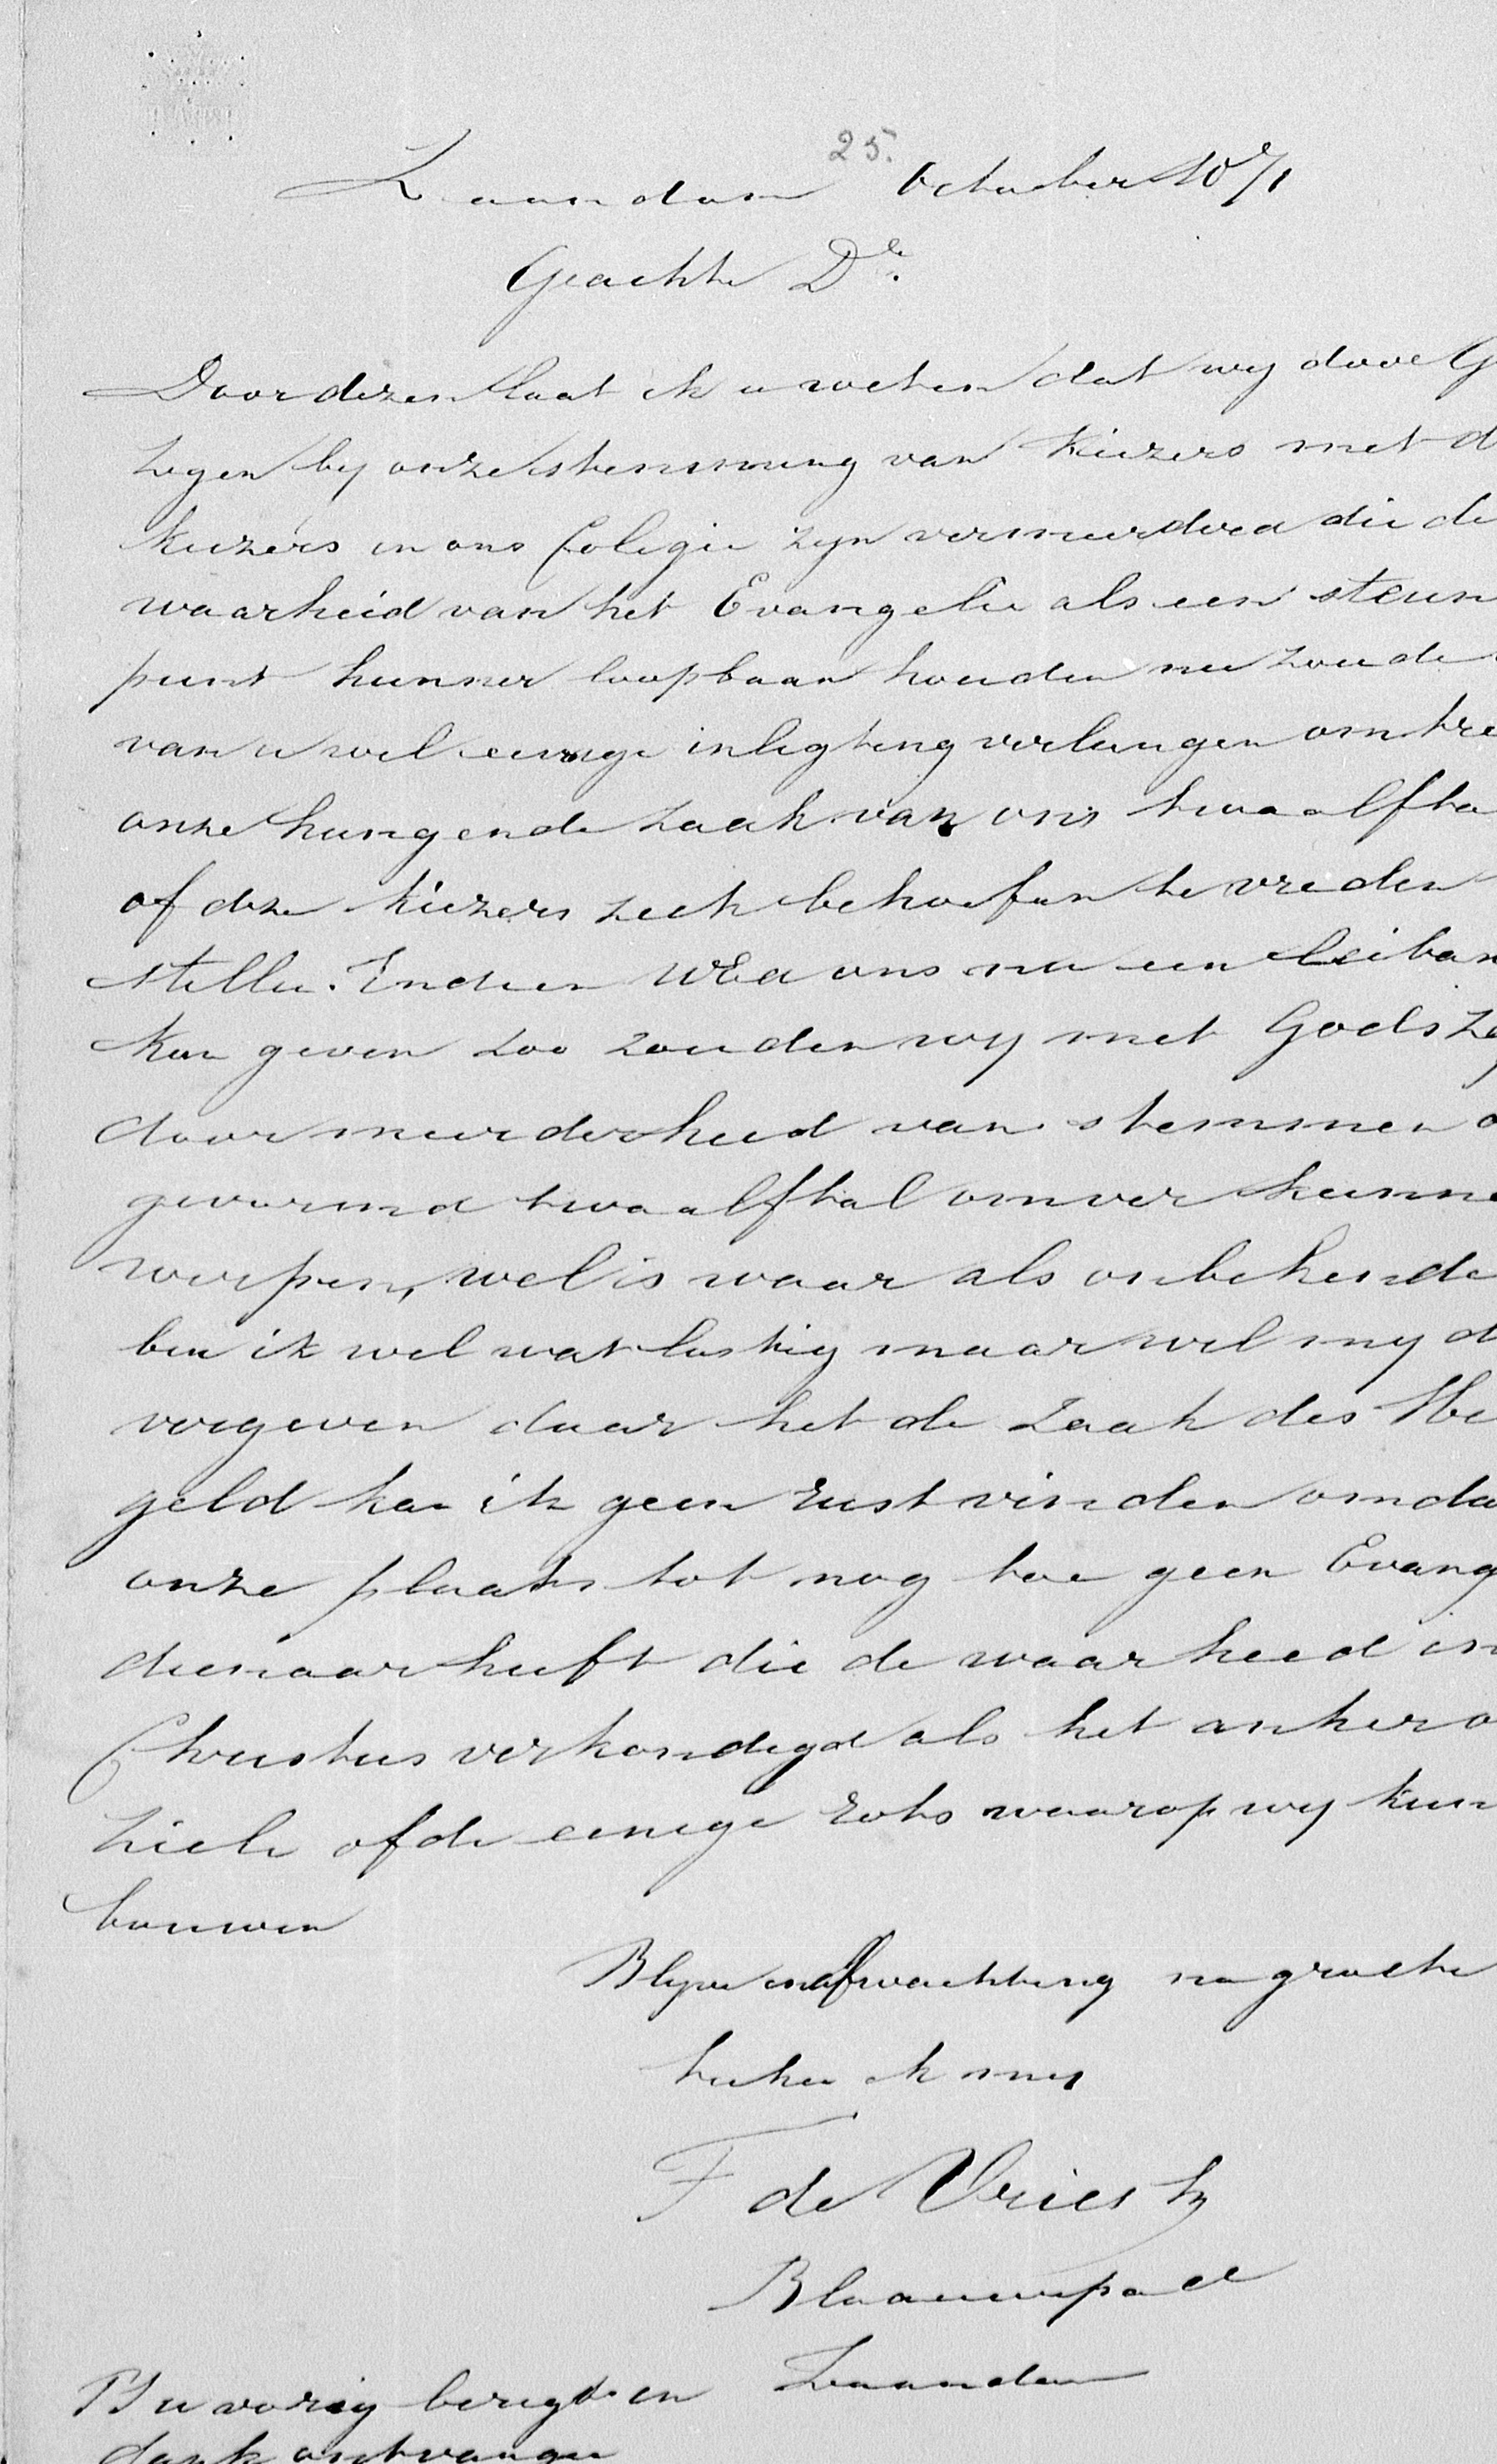 Zaandam 25. October 1871
Geachte De.
Door dezen laat ik u weten dat wy door G
zegen by onze stemming van kiezers met d
kiezers in ons Colegie zyn vermeerderd die de
waarheid van het Evangelie als een steun
punt hunner loopbaan houden nu zoude
van u wel eenige inligting verlangen omtre
onze hangende zaak van ons twaalfta
of deze kiezers zich behoefen te vreden
stellen. Indien WEd ons nu een leiban
kan geven zoo zouden wy met Gods ze
door meerderheid van stemmen o
gevormd twaalftal omver kunne
werpen, wel is waar als onbekende
ben ik wel wat lastig maar wel my d
vergeven daar het de zaak des He
geld kan ik geen rust vinden omda
onze plaats tot nog toe geen Evang
dienaar heeft die de waarheid in
Christus verkondigd als het anker o
ziele of de eenige rots waarop wy kun
bouwen
Blyve in afwachting na groete
teeken ik my
F de Vries Hz
Blaauwepad
Zaandam
PS u vorig berigt in
dank ontvangen